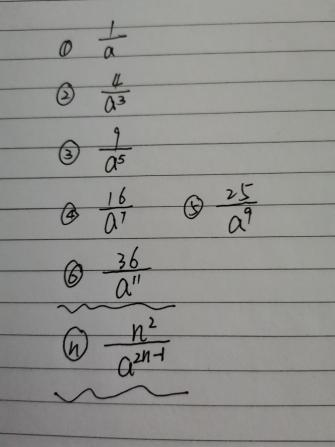 ① 1/a
② 4/a³
③ 9/a⁵
④ 16/a⁷ ⑤ 25/a⁹
⑥ 36/a¹¹
ⓝ n²/a²ⁿ⁻¹